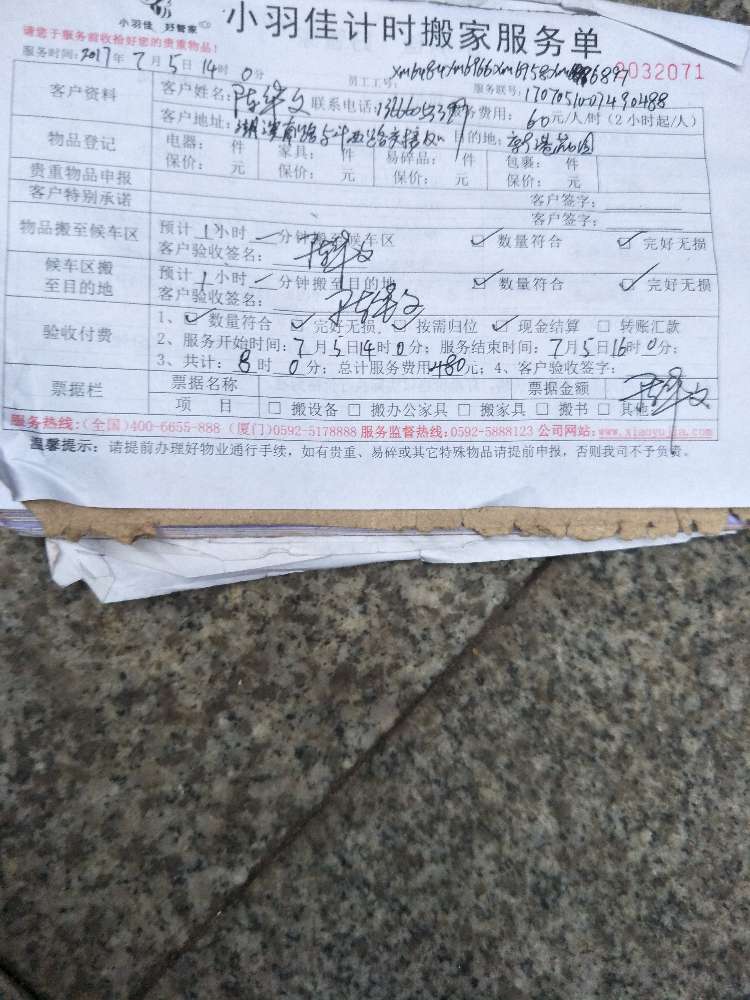 小羽佳 好管家
小羽佳计时搬家服务单
请您于服务前收拾好您的贵重物品!
服务时间:2017年7月5日14时0分
员工工号: 0032071
服务联号:
客户资料 客户姓名: 联系电话: 服务费用:60元/人/时(2小时起/人)
客户地址: 目的地:
物品登记 电器: 件 家具: 件 易碎品: 件 包裹: 件
保价: 元 保价: 元 保价: 元 保价: 元
贵重物品申报 客户签字:
客户特别承诺 客户签字:
物品搬至候车区 预计1小时一分钟搬至候车区 ✓数量符合 ✓完好无损
客户验收签名:
候车区搬至目的地 预计1小时一分钟搬至目的地 ✓数量符合 ✓完好无损
客户验收签名:
验收付费 1、✓数量符合 ✓完好无损 ✓按需归位 ✓现金结算 □ 转账汇款
2、服务开始时间:7月5日14时0分;服务结束时间:7月5日16时0分;
3、共计:8时0分;总计服务费用480元;4、客户验收签字:
票据栏 票据名称 票据金额
项 目 □ 搬设备 □ 搬办公家具 □ 搬家具 □ 搬书 □ 其他
服务热线:(全国)400-6655-888 (厦门)0592-5178888 服务监督热线:0592-5888123 公司网站:www.xiaoyujia.com
温馨提示:请提前办理好物业通行手续,如有贵重、易碎或其它特殊物品请提前申报,否则我司不予负责。